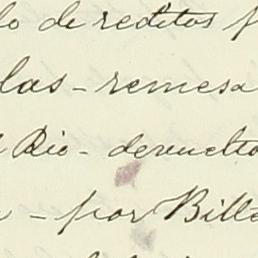 lo de reditos p
las - remesa
l Rio - devuelto
- por Bille